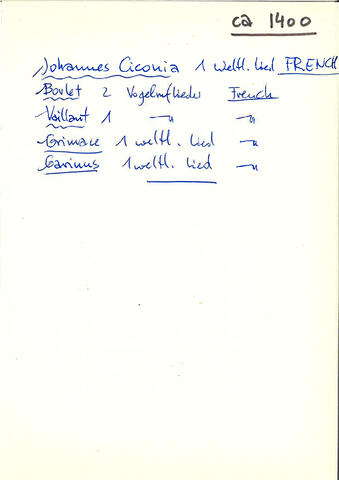 ca 1400
Johannes Ciconia 1 weltl. Lied FRENCH
Borlet 2 Vogelruflieder French
Vaillant 1 —〃 —〃
Grimace 1 weltl. Lied —〃
Garinus 1 weltl. Lied —〃